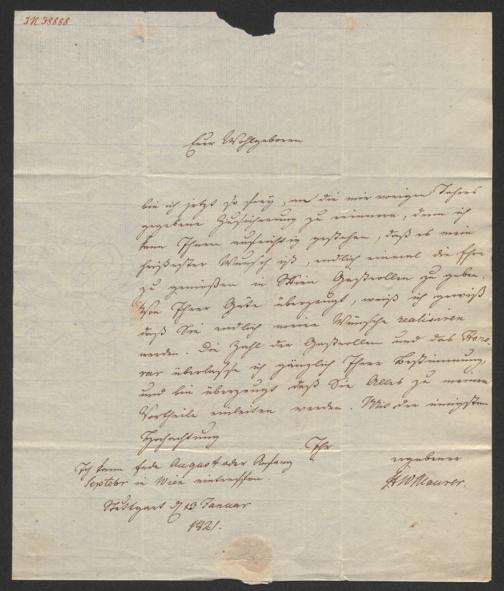 I.N. 38888
Euer Wohlgeboren
bin ich jetzt so frey, an die mir vorigen Jahres
gegebene Zusicherung zu erinnern, denn ich
kann Ihnen aufrichtig gestehen, daß es mein
heißester Wunsch ist, endlich einmal die Ehre
zu genießen in Wien Gastrollen zu geben.
Von Ihrer Güte überzeugt, weiß ich gewiß
daß Sie endlich meine Wünsche realisiren
werden. Die Zahl der Gastrollen und das Hono-
rar überlasse ich gänzlich Ihrer Bestimmung,
und bin überzeugt daß Sie Alles zu meinem
Vortheile einleiten werden. Mit der innigsten
Hochachtung
Ihr ergebener
Ich kann Ende August oder Anfang
Septebr in Wien eintreffen.
Maurer.
Stuttgart d 13 Januar
1821.